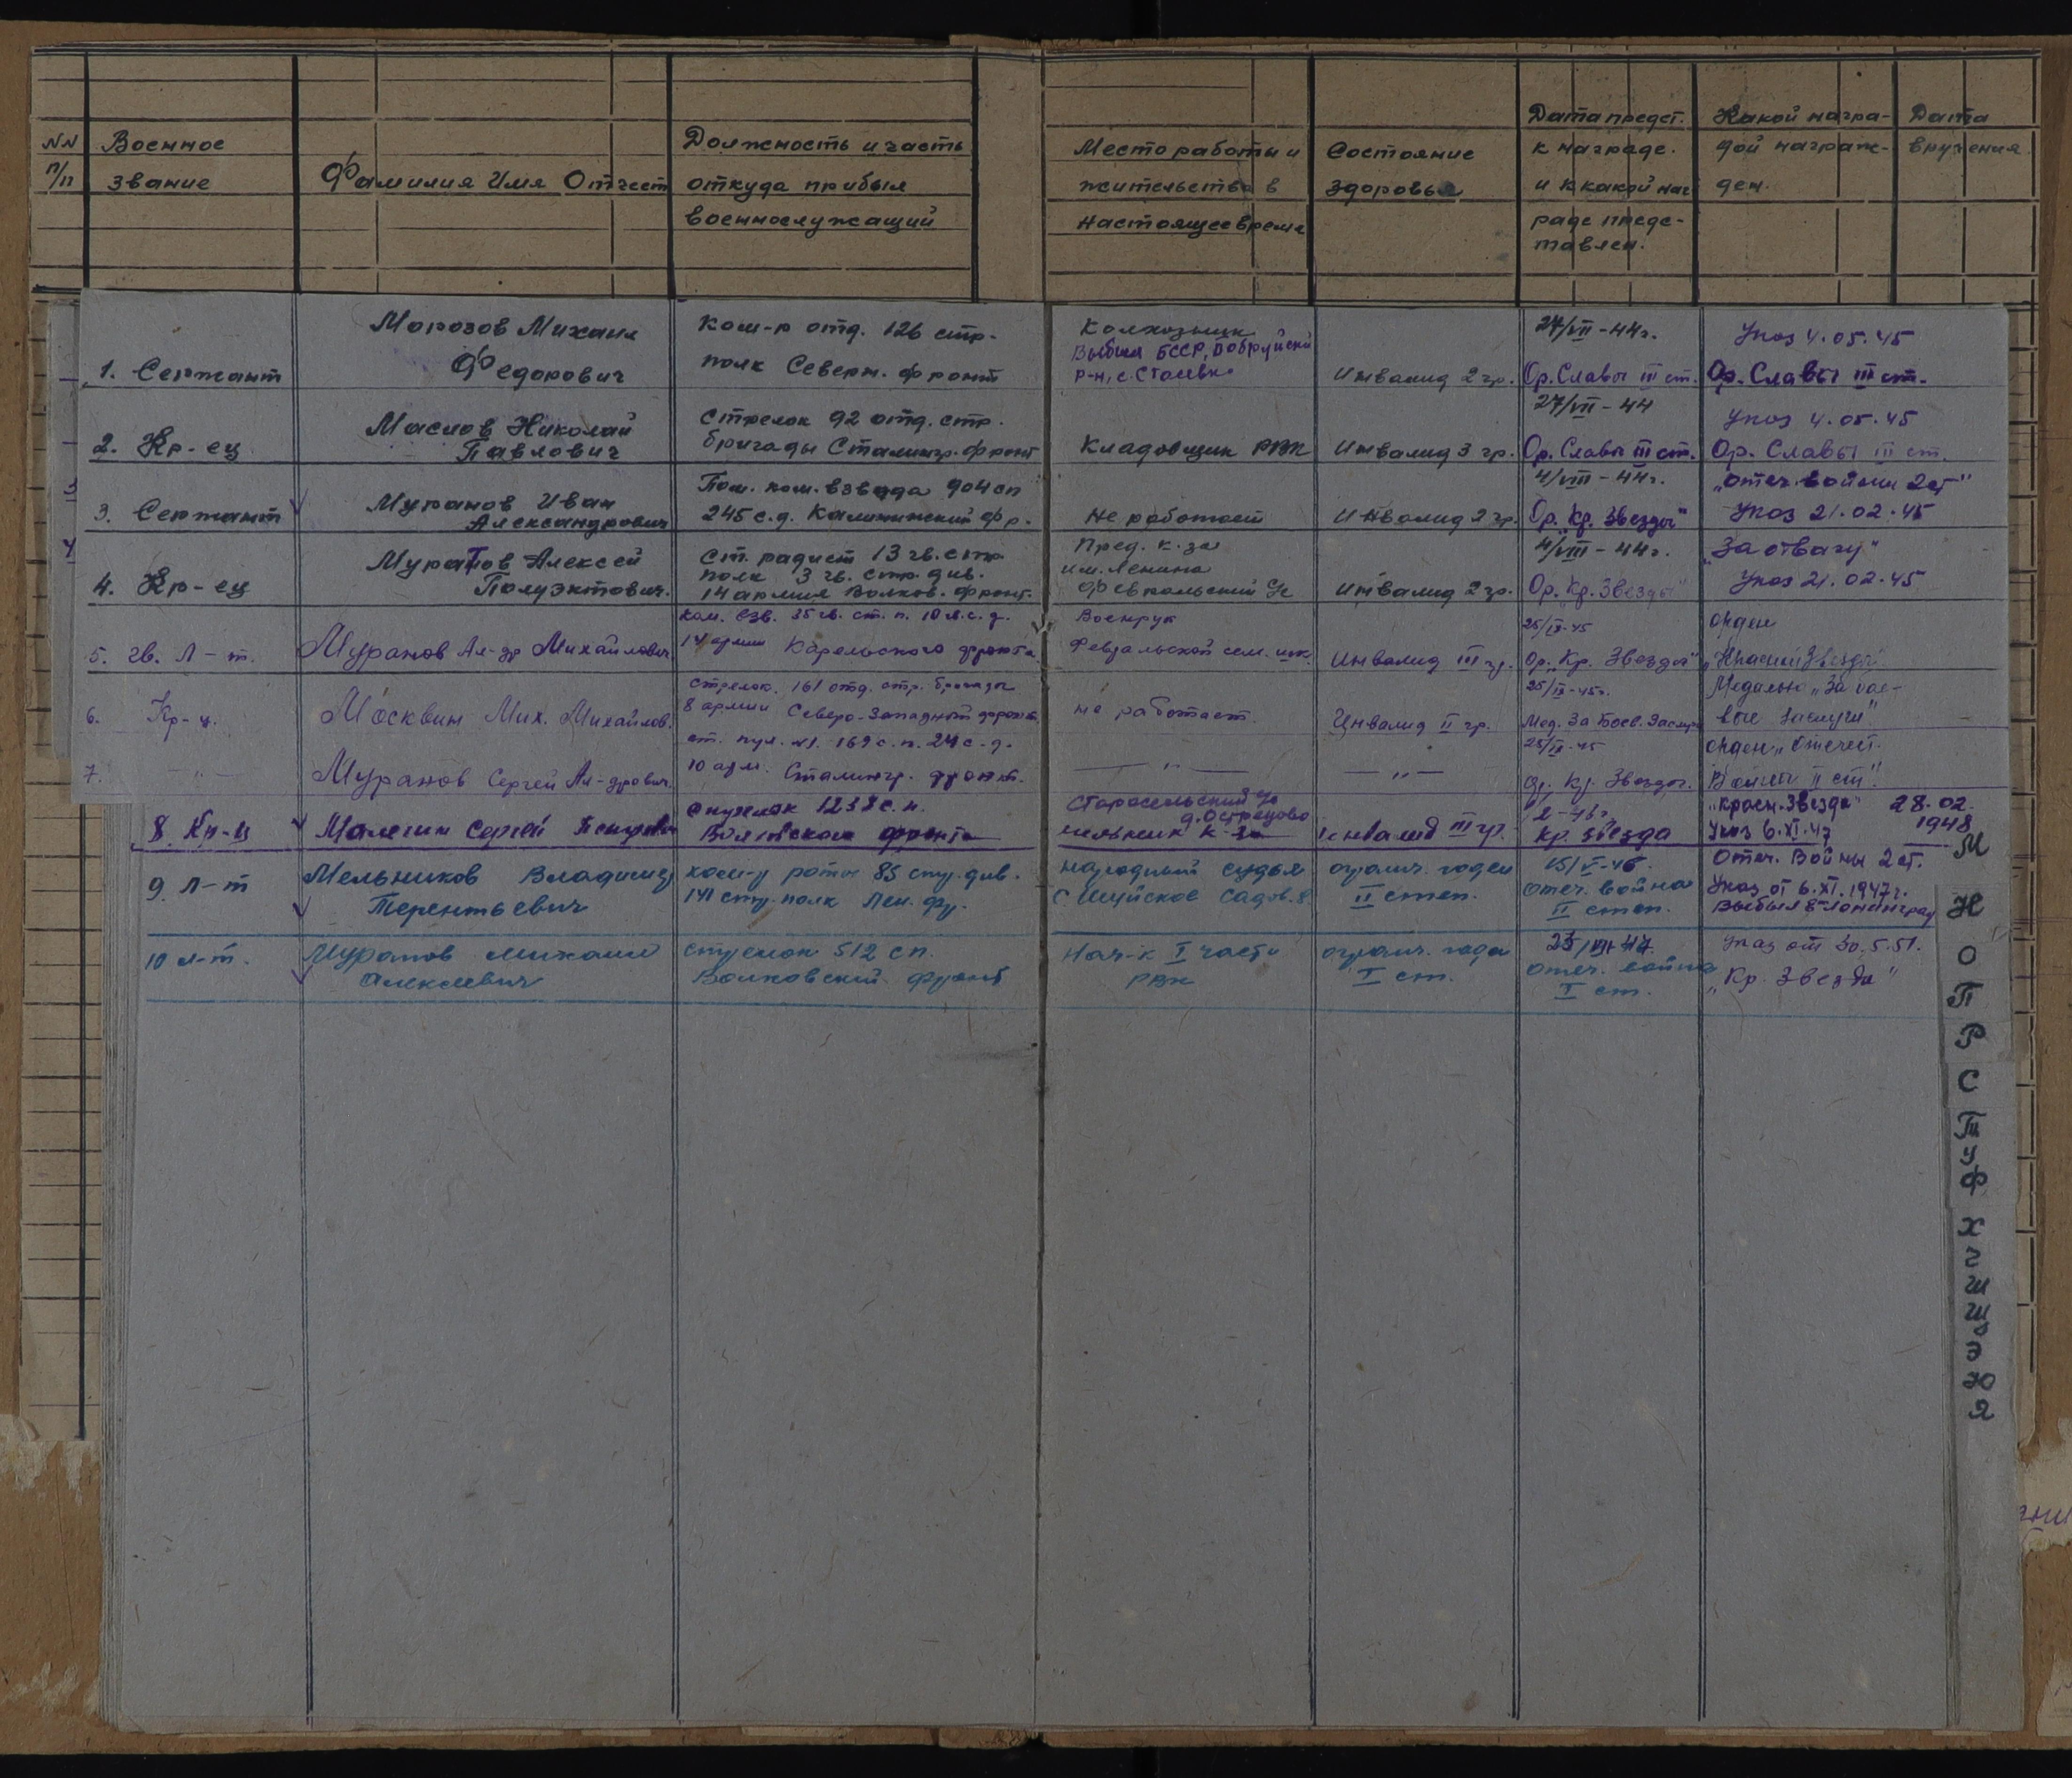 NN п/п
Военное звание
Фамилия Имя Отчест
Должность и часть
откуда прибыл
военнослужащий
Место работы и
жительства в
настоящее время
Состояние
здоровья
Дата предст.
к награде.
и к какой наг
раде предс-
тавлен.
Какой награ-
дой награж-
ден.
Дата
вручения.
1. Сержант
Морозов Михаил
Федорович
Ком-р отд. 126 стр.
полк Северн. фронт
Колхозник
Выбыл БССР, Бобруйский
р-н, с.
Инвалид 2 гр.
27/VII-44г.
Ор. Славы III ст.
Указ 4.05.45
Ор. Славы III ст.
2. Кр-ец
Маслов Николай
Павлович
Стрелок 92 отд. стр.
бригады Сталингр. фронт
Кладовщик РВК
Инвалид 3 гр.
27/VII-44
Ор. Славы III ст.
Указ 4.05.45
Ор. Славы III ст.
3. Сержант
Муранов Иван
Александрович
Пом. ком. взвода 904 сп
245 с.д. Калининский фр.
Не работает
Инвалид 2 гр.
4/VIII-44г.
Ор. "Кр. Звезды"
"Отеч. войны 2 ст"
Указ 21.02.45
4. Кр-ец
Муратов Алексей
Полуэктович.
Ст. радист 13 гв. стр.
полк 3 гв. стр. див.
14 армия Волхов. фронт.
Пред. к-за
им. Ленина
Февральский
Инвалид 2 гр.
4/VIII-44г.
Ор. "Кр. Звезды"
"За отвагу"
Указ 21.02.45
5. гв. Л-т.
Муранов Ал-др Михайлович
Ком. взв. 35 гв. ст. п. 10 гв. с. д.
14 армии Карельского фронта
Военрук
Февральской сем. шк.
Инвалид III гр.
25/IX-45
Ор. Кр. Звезды"
Орден
"Красной Звезды"
6. Кр-ц.
Москвин Мих. Михайлов.
Стрелок. 161 отд. стр. бригады
8 армии Северо-Западный фронт.
не работает.
Инвалид II гр.
25/IX-45г.
Мед. За Боев. Заслуги
Медалью "За бое-
вые заслуги".
7. —"—
Муранов Сергей Ал-дрович.
ст. пул. 169 с.п. 24 с.д.
10 арм. Сталингр. фронт.
—"—
—"—
25/IX-45
Ор. Кр. Звезды.
Орден "Отечест.
Войны II ст".
8. Кр-ц
Малегин Сергей
Стрелок 1238 с.п.
Волховского фронта
Старосельский
д. Острецово
мельник к-за
инвалид III гр.
Кр. Звезда
"Красн. Звезда"
Указ 6.XI.47
28.02.
1948
9. Л-т
Мельников Владимир
Терентьевич
ком-р роты 85 стр. див.
141 стр. полк Лен. фр.
Народный судья
с Шуйское Садов. 8
огранич. годен
II степ.
15/V-46.
отеч. война
II степ.
Отеч. Войны 2 ст.
Указ от 6.XI.1947г.
Выбыл в Ленинград
10 л-т.
Муратов Михаил
Алексеевич
стрелок 512 сп.
Волховский фронт
Нач-к I части
РВК
огранич. годен
I ст.
отеч. война
I ст.
Указ от 30.5.51.
"Кр. Звезда"
М
Н
О
П
Р
С
Т
У
Ф
Х
Ч
Ш
Щ
Э
Ю
Я